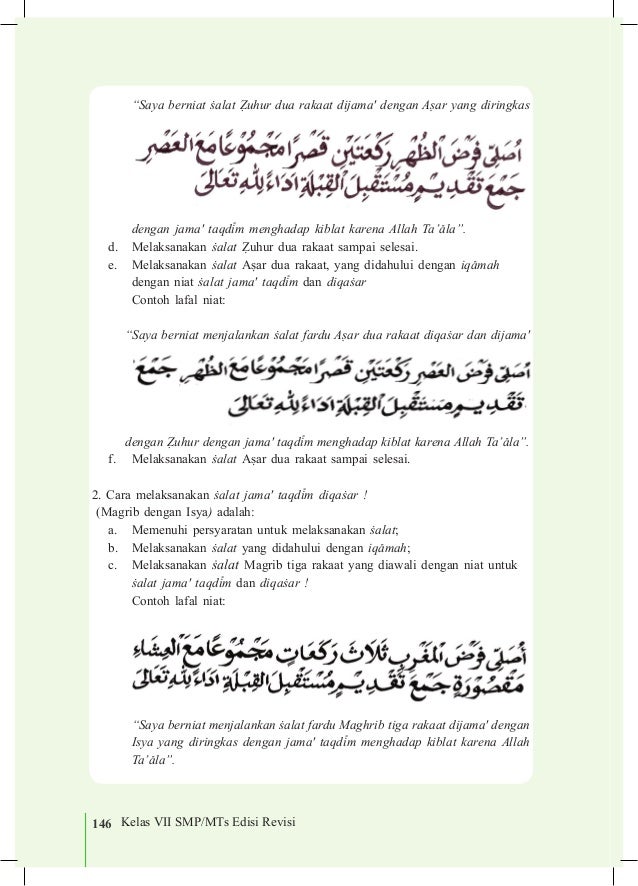 “Saya berniat ṡalat Ẓuhur dua rakaat dijama' dengan Aṣar yang diringkas
اُصَلِّىْ فَرْضَ الظُّهْرِ رَكْعَتَيْنِ قَصْرًا مَجْمُوْعًا مَعَ الْعَصْرِ
جَمْعَ تَقْدِيْمٍ مُسْتَقْبِلَ الْقِبْلَةِ اَدَاءً لِلّٰهِ تَعَالَى
dengan jama' taqdĩm menghadap kiblat karena Allah Ta’āla”.
d. Melaksanakan ṡalat Ẓuhur dua rakaat sampai selesai.
e. Melaksanakan ṡalat Aṣar dua rakaat, yang didahului dengan iqāmah
dengan niat ṡalat jama' taqdĩm dan diqaṡar
Contoh lafal niat:
“Saya berniat menjalankan ṡalat fardu Aṣar dua rakaat diqaṡar dan dijama'
اُصَلِّىْ فَرْضَ الْعَصْرِ رَكْعَتَيْنِ قَصْرًا مَجْمُوْعًا مَعَ الظُّهْرِ جَمْعَ
تَقْدِيْمٍ مُسْتَقْبِلَ الْقِبْلَةِ اَدَاءً لِلّٰهِ تَعَالَى
dengan Ẓuhur dengan jama' taqdĩm menghadap kiblat karena Allah Ta’āla”.
f. Melaksanakan ṡalat Aṣar dua rakaat sampai selesai.
2. Cara melaksanakan ṡalat jama' taqdĩm diqaṡar !
(Magrib dengan Isya) adalah:
a. Memenuhi persyaratan untuk melaksanakan ṡalat;
b. Melaksanakan ṡalat yang didahului dengan iqāmah;
c. Melaksanakan ṡalat Magrib tiga rakaat yang diawali dengan niat untuk
ṡalat jama' taqdĩm dan diqaṡar !
Contoh lafal niat:
اُصَلِّىْ فَرْضَ الْمَغْرِبِ ثَلَاثَ رَكَعَاتٍ مَجْمُوْعًا مَعَ الْعِشَاءِ
مَقْصُوْرَةٍ جَمْعَ تَقْدِيْمٍ مُسْتَقْبِلَ الْقِبْلَةِ اَدَاءً لِلّٰهِ تَعَالَى
“Saya berniat menjalankan ṡalat fardu Maghrib tiga rakaat dijama' dengan
Isya yang diringkas dengan jama' taqdĩm menghadap kiblat karena Allah
Ta’āla”.
146 Kelas VII SMP/MTs Edisi Revisi